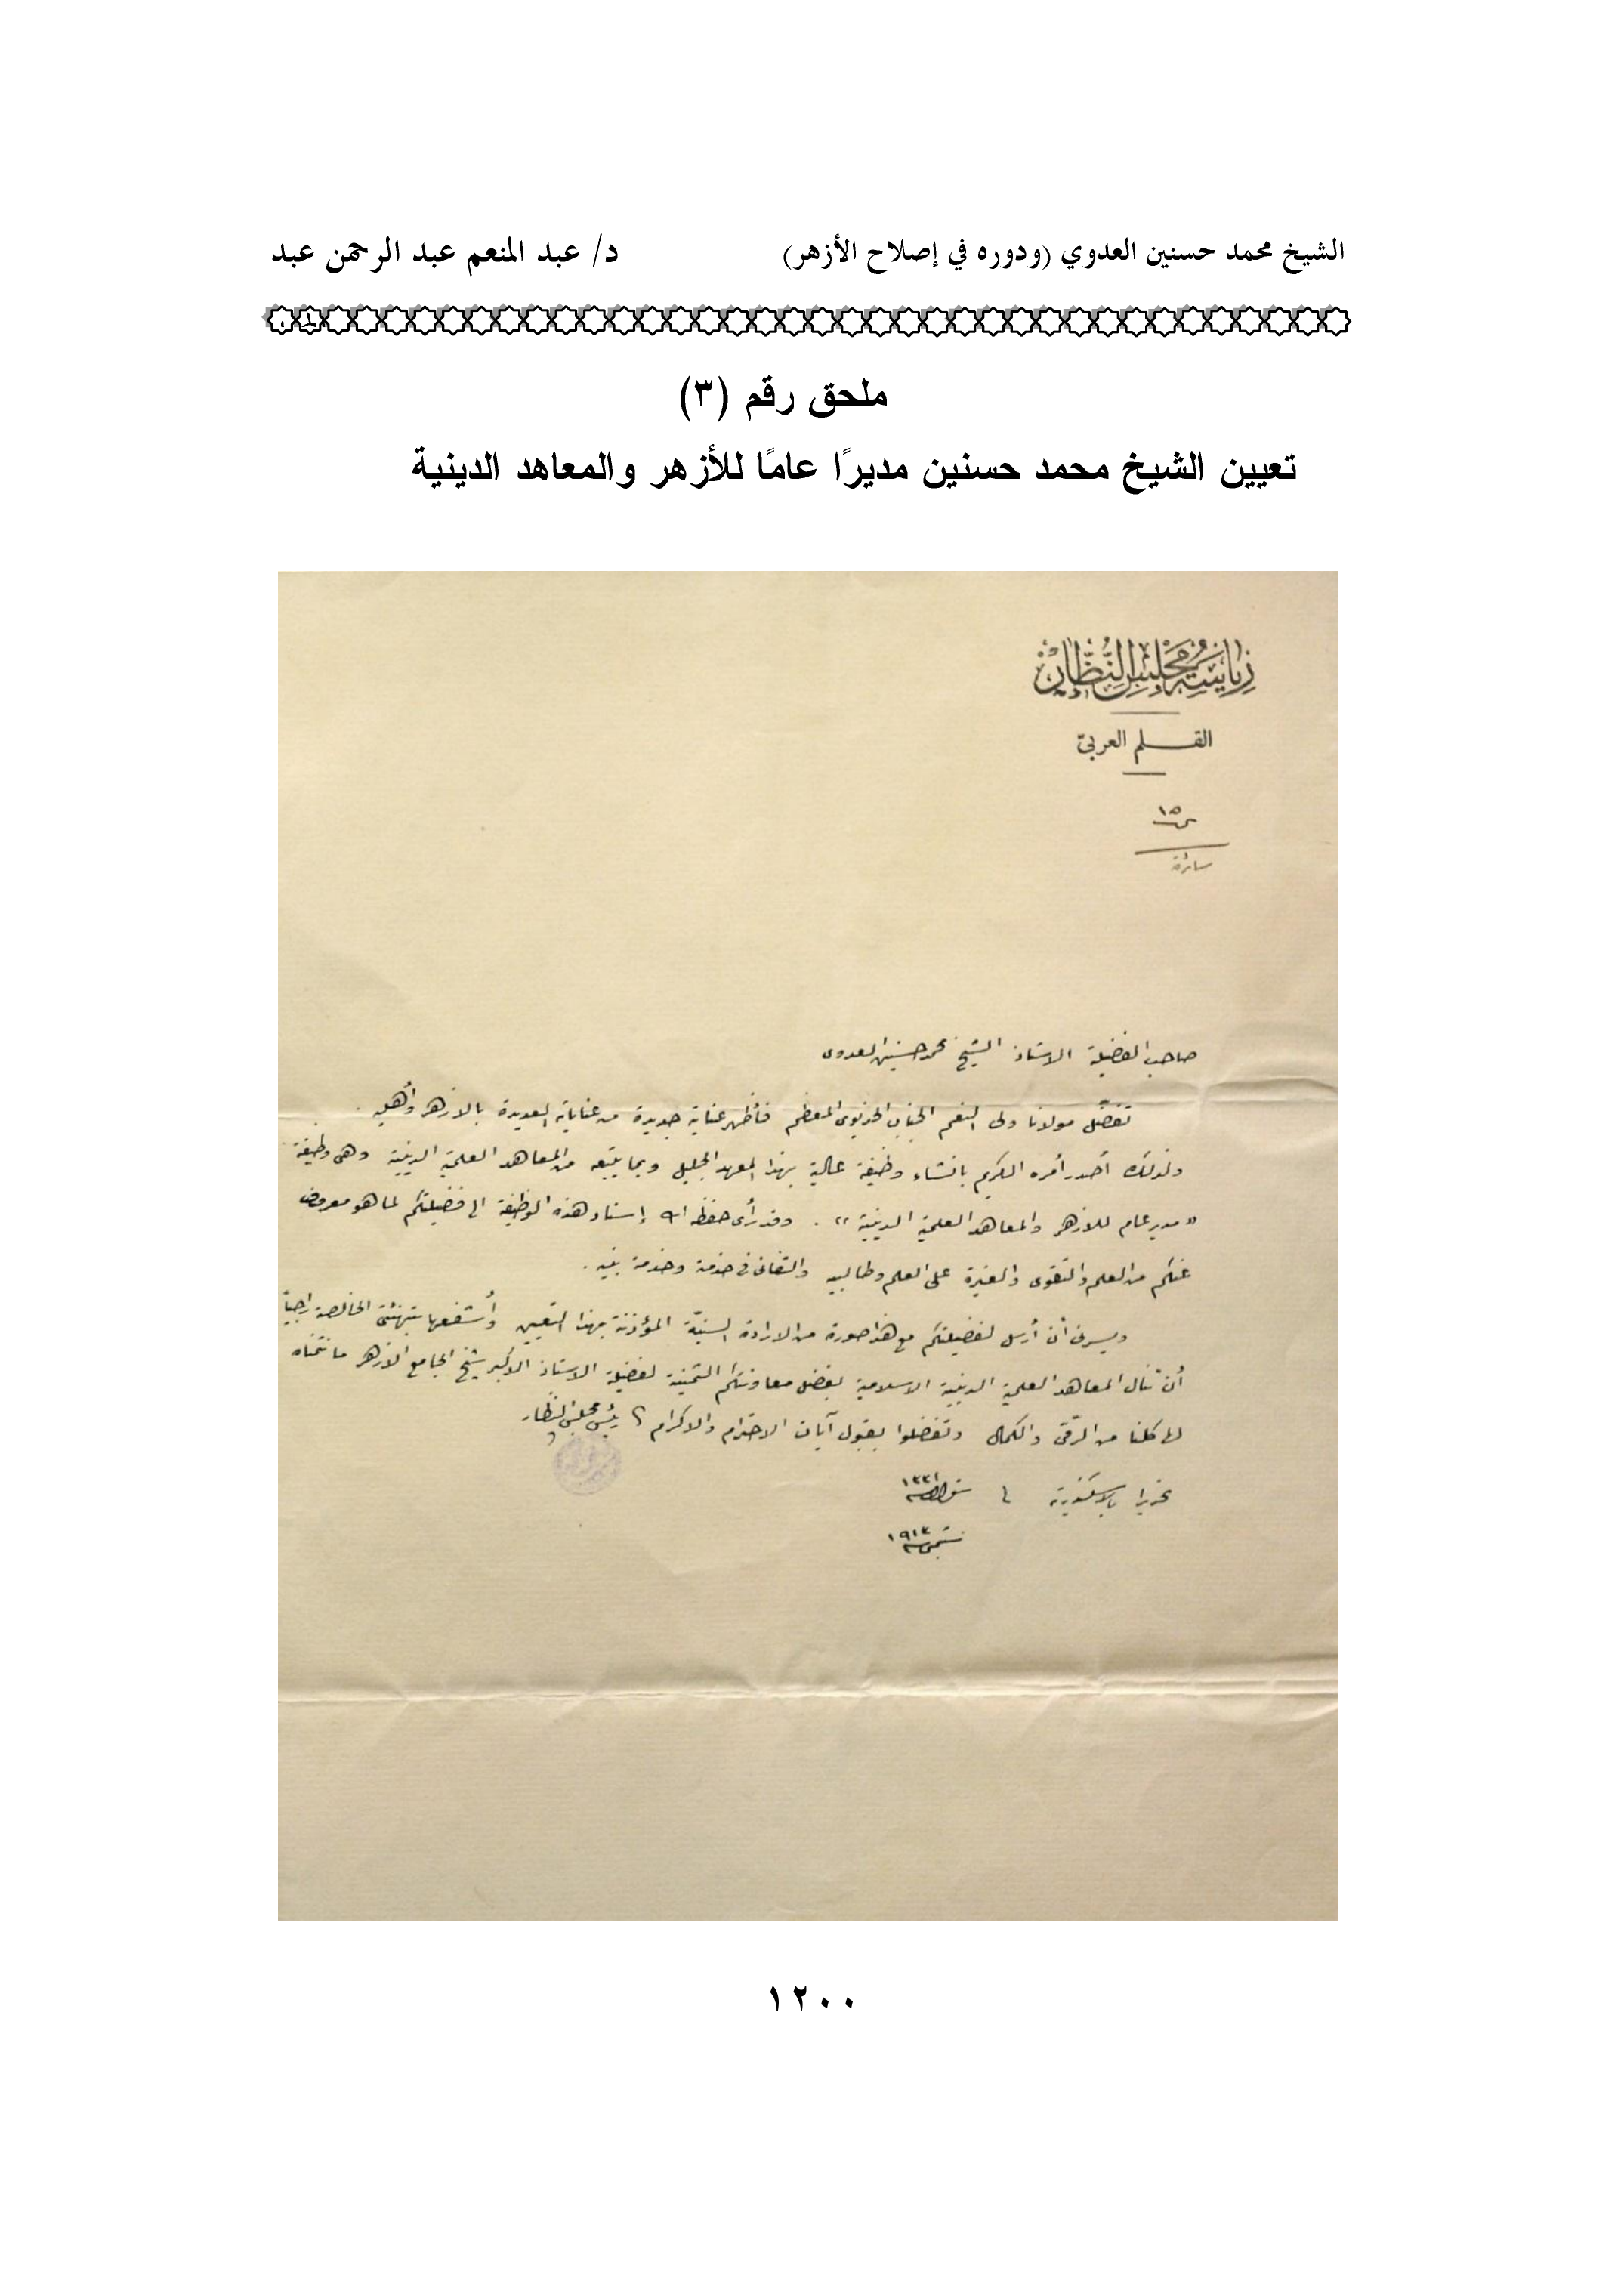 الشيخ محمد حسنين العدوي (ودوره في إصلاح الأزهر) د/ عبد المنعم عبد الرحمن عبد
ملحق رقم (٣)
تعيين الشيخ محمد حسنين مديرًا عامًا للأزهر والمعاهد الدينية
رياسة مجلس النظار
القلم العربيّ
١٥
سائرة
صاحب الفضيلة الاستاذ الشيخ محمد حسنين العدوى
تفضّل مولانا ولى النعم الجناب الخديوى المعظم فأظهر عناية جديدة من عناياته العديدة بالازهر وأهله .
ولذلك أصدر أمره الكريم بانشاء وظيفة عالية بهذا المعهد الجليل وبما يتبعه من المعاهد العلمية الدينية وهى وظيفة
« مدير عام للازهر والمعاهد العلمية الدينية » . وقد رأى حفظه الله إسناد هذه الوظيفة الى فضيلتكم لما هو معروف
عنكم من العلم والتقوى والغيرة على العلم وطالبيه والتفانى فى خدمته وخدمة بنيه .
ويسرنى أن أرسل لفضيلتكم مع هذا صورة من الارادة السنيّة المؤذنة بهذا التعيين وأشفعها بتهنئتى الخالصة راجياً
أن تنال المعاهد العلمية الدينية الاسلامية بفضل معاونتكم الثمينة لفضيلة الاستاذ الاكبر شيخ الجامع الازهر ما نتمناه
لها كلنا من الرقّى والكمال وتفضلوا بقبول آيات الاحترام والاكرام رئيس مجلس النظار
تحريرا بالاسكندرية فى شوال سنة ١٣٣١
سبتمبر سنة ١٩١٣
١٢٠٠